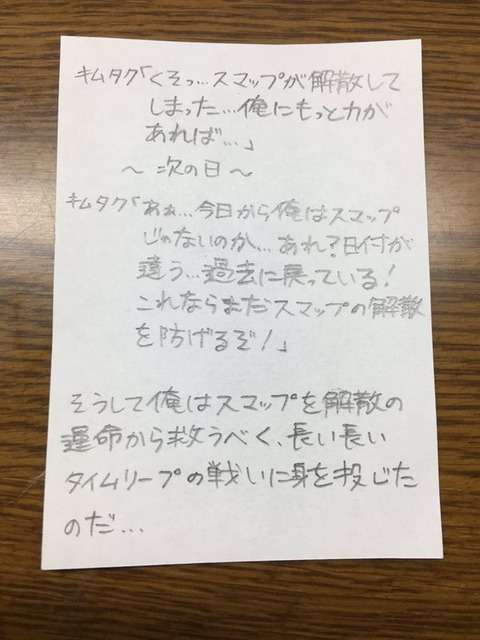 キムタク「くそっ…スマップが解散して
しまった…俺にもっと力が
あれば…」
～次の日～
キムタク「あぁ…今日から俺はスマップ
じゃないのか…あれ？日付が
違う…過去に戻っている！
これならまだスマップの解散
を防げるぞ！」
そうして俺はスマップを解散の
運命から救うべく、長い長い
タイムリープの戦いに身を投じた
のだ…